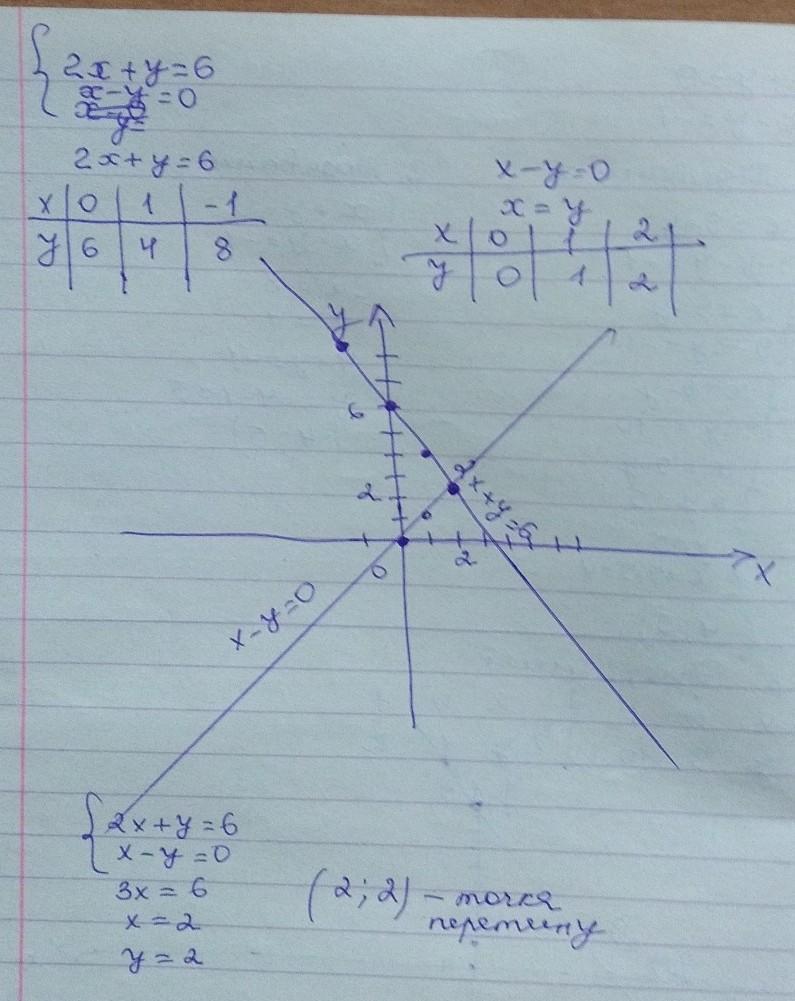 2x+y=6
x-y=0
2x+y=6
x 0 1 -1
y 6 4 8
x-y=0
x=y
x 0 1 2
y 0 1 2
y
6
2
2x+y=6
0 2 x
x-y=0
2x+y=6
x-y=0
3x=6
x=2
y=2
(2;2) - точка
перетину